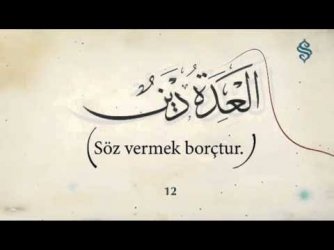 العدة دينٌ
(Söz vermek borçtur.)
12